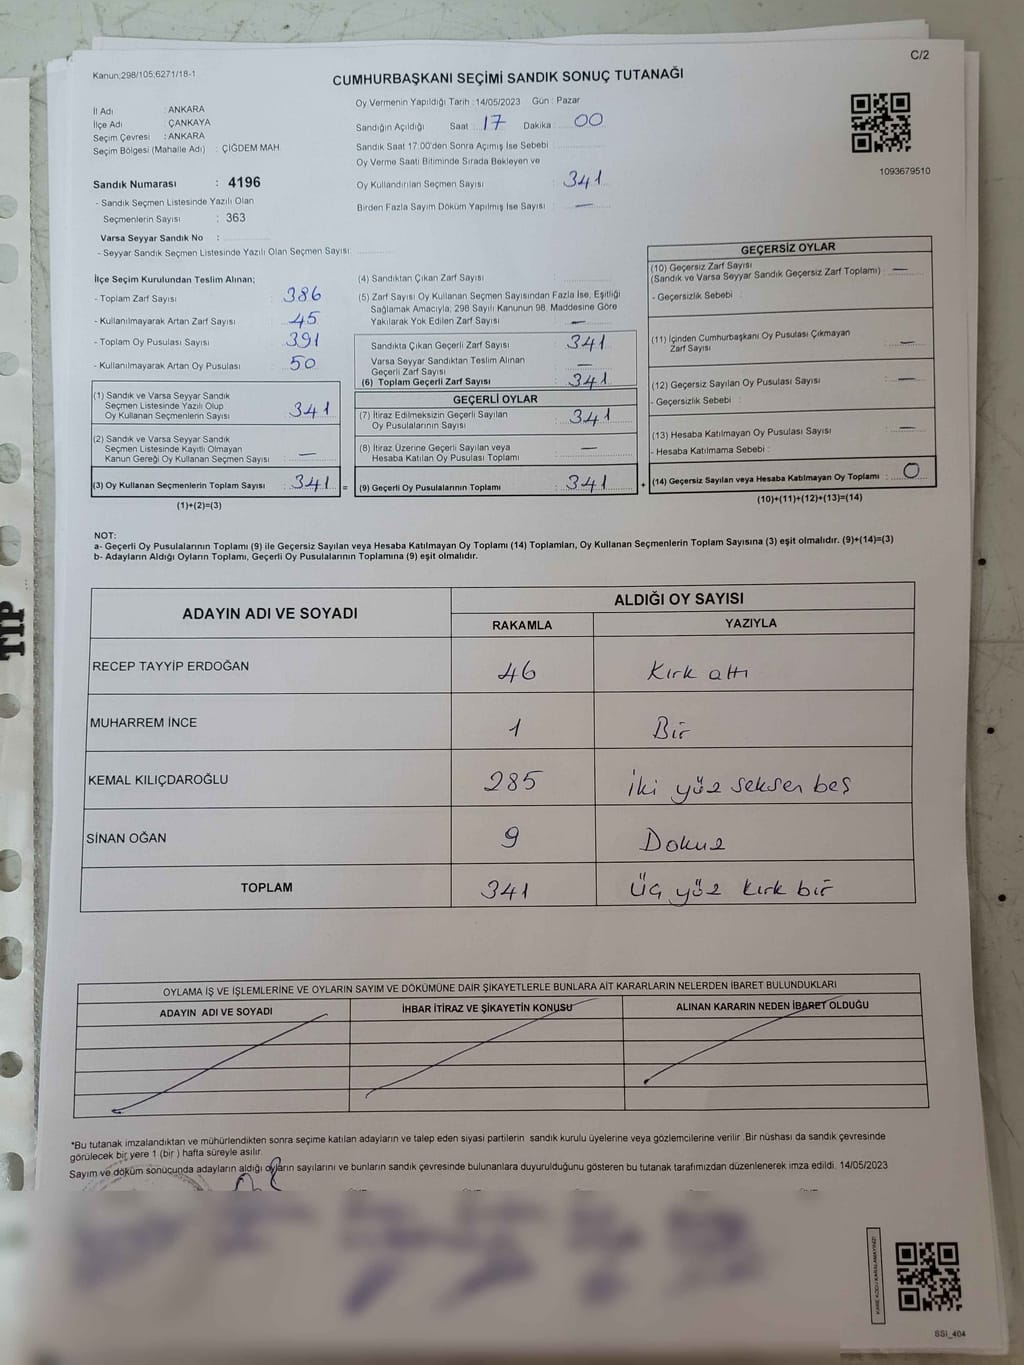 C/2
Kanun:298/105;6271/18-1
CUMHURBAŞKANI SEÇİMİ SANDIK SONUÇ TUTANAĞI
İl Adı : ANKARA
İlçe Adı : ÇANKAYA
Seçim Çevresi : ANKARA
Seçim Bölgesi (Mahalle Adı) : ÇİĞDEM MAH.
Sandık Numarası : 4196
- Sandık Seçmen Listesinde Yazılı Olan
Seçmenlerin Sayısı : 363
Varsa Seyyar Sandık No :
- Seyyar Sandık Seçmen Listesinde Yazılı Olan Seçmen Sayısı:
Oy Vermenin Yapıldığı Tarih : 14/05/2023 Gün : Pazar
Sandığın Açıldığı Saat : 17 Dakika : 00
Sandık Saat 17:00'den Sonra Açımış İse Sebebi :
Oy Verme Saati Bitiminde Sırada Bekleyen ve
Oy Kullandırılan Seçmen Sayısı : 341
Birden Fazla Sayım Döküm Yapılmış İse Sayısı : —
1093679510
İlçe Seçim Kurulundan Teslim Alınan;
- Toplam Zarf Sayısı : 386
- Kullanılmayarak Artan Zarf Sayısı : 45
- Toplam Oy Pusulası Sayısı : 391
- Kullanılmayarak Artan Oy Pusulası : 50
(1) Sandık ve Varsa Seyyar Sandık
Seçmen Listesinde Yazılı Olup
Oy Kullanan Seçmenlerin Sayısı : 341
(2) Sandık ve Varsa Seyyar Sandık
Seçmen Listesinde Kayıtlı Olmayan
Kanun Gereği Oy Kullanan Seçmen Sayısı : —
(3) Oy Kullanan Seçmenlerin Toplam Sayısı : 341 =
(1)+(2)=(3)
(4) Sandıktan Çıkan Zarf Sayısı :
(5) Zarf Sayısı Oy Kullanan Seçmen Sayısından Fazla İse, Eşitliği
Sağlamak Amacıyla; 298 Sayılı Kanunun 98. Maddesine Göre
Yakılarak Yok Edilen Zarf Sayısı : —
Sandıkta Çıkan Geçerli Zarf Sayısı : 341
Varsa Seyyar Sandıktan Teslim Alınan
Geçerli Zarf Sayısı : —
(6) Toplam Geçerli Zarf Sayısı : 341
GEÇERLİ OYLAR
(7) İtiraz Edilmeksizin Geçerli Sayılan
Oy Pusulalarının Sayısı : 341
(8) İtiraz Üzerine Geçerli Sayılan veya
Hesaba Katılan Oy Pusulası Toplamı : —
(9) Geçerli Oy Pusulalarının Toplamı : 341 +
GEÇERSİZ OYLAR
(10) Geçersiz Zarf Sayısı
(Sandık ve Varsa Seyyar Sandık Geçersiz Zarf Toplamı) : —
- Geçersizlik Sebebi :
(11) İçinden Cumhurbaşkanı Oy Pusulası Çıkmayan
Zarf Sayısı : —
(12) Geçersiz Sayılan Oy Pusulası Sayısı : —
- Geçersizlik Sebebi :
(13) Hesaba Katılmayan Oy Pusulası Sayısı : —
- Hesaba Katılmama Sebebi :
(14) Geçersiz Sayılan veya Hesaba Katılmayan Oy Toplamı : 0
(10)+(11)+(12)+(13)=(14)
NOT:
a- Geçerli Oy Pusulalarının Toplamı (9) ile Geçersiz Sayılan veya Hesaba Katılmayan Oy Toplamı (14) Toplamları, Oy Kullanan Seçmenlerin Toplam Sayısına (3) eşit olmalıdır. (9)+(14)=(3)
b- Adayların Aldığı Oyların Toplamı, Geçerli Oy Pusulalarının Toplamına (9) eşit olmalıdır.
TIP
ADAYIN ADI VE SOYADI ALDIĞI OY SAYISI
RAKAMLA YAZIYLA
RECEP TAYYİP ERDOĞAN 46 Kırk altı
MUHARREM İNCE 1 Bir
KEMAL KILIÇDAROĞLU 285 iki yüz seksen beş
SİNAN OĞAN 9 Dokuz
TOPLAM 341 Üç yüz kırk bir
OYLAMA İŞ VE İŞLEMLERİNE VE OYLARIN SAYIM VE DÖKÜMÜNE DAİR ŞİKAYETLERLE BUNLARA AİT KARARLARIN NELERDEN İBARET BULUNDUKLARI
ADAYIN ADI VE SOYADI İHBAR İTİRAZ VE ŞİKAYETİN KONUSU ALINAN KARARIN NEDEN İBARET OLDUĞU
*Bu tutanak imzalandıktan ve mühürlendikten sonra seçime katılan adayların ve talep eden siyasi partilerin sandık kurulu üyelerine veya gözlemcilerine verilir .Bir nüshası da sandık çevresinde
görülecek bir yere 1 (bir ) hafta süreyle asılır.
Sayım ve döküm sonucunda adayların aldığı oyların sayılarını ve bunların sandık çevresinde bulunanlara duyurulduğunu gösteren bu tutanak tarafımızdan düzenlenerek imza edildi. 14/05/2023
KARE KODU KARALAMAYINIZ!
SSI_404